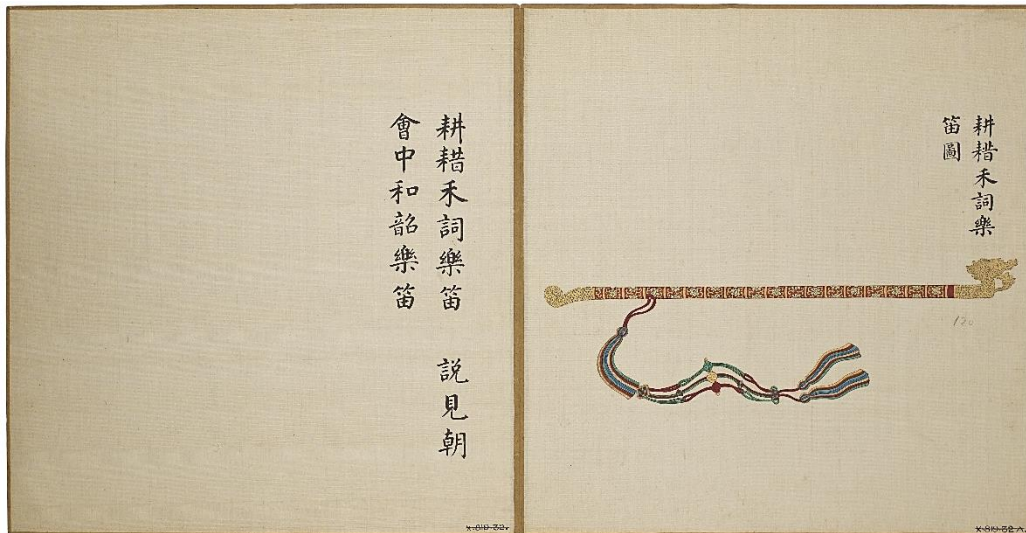 耕耤禾詞樂
笛圖
120
耕耤禾詞樂笛　説見朝
會中和韶樂笛